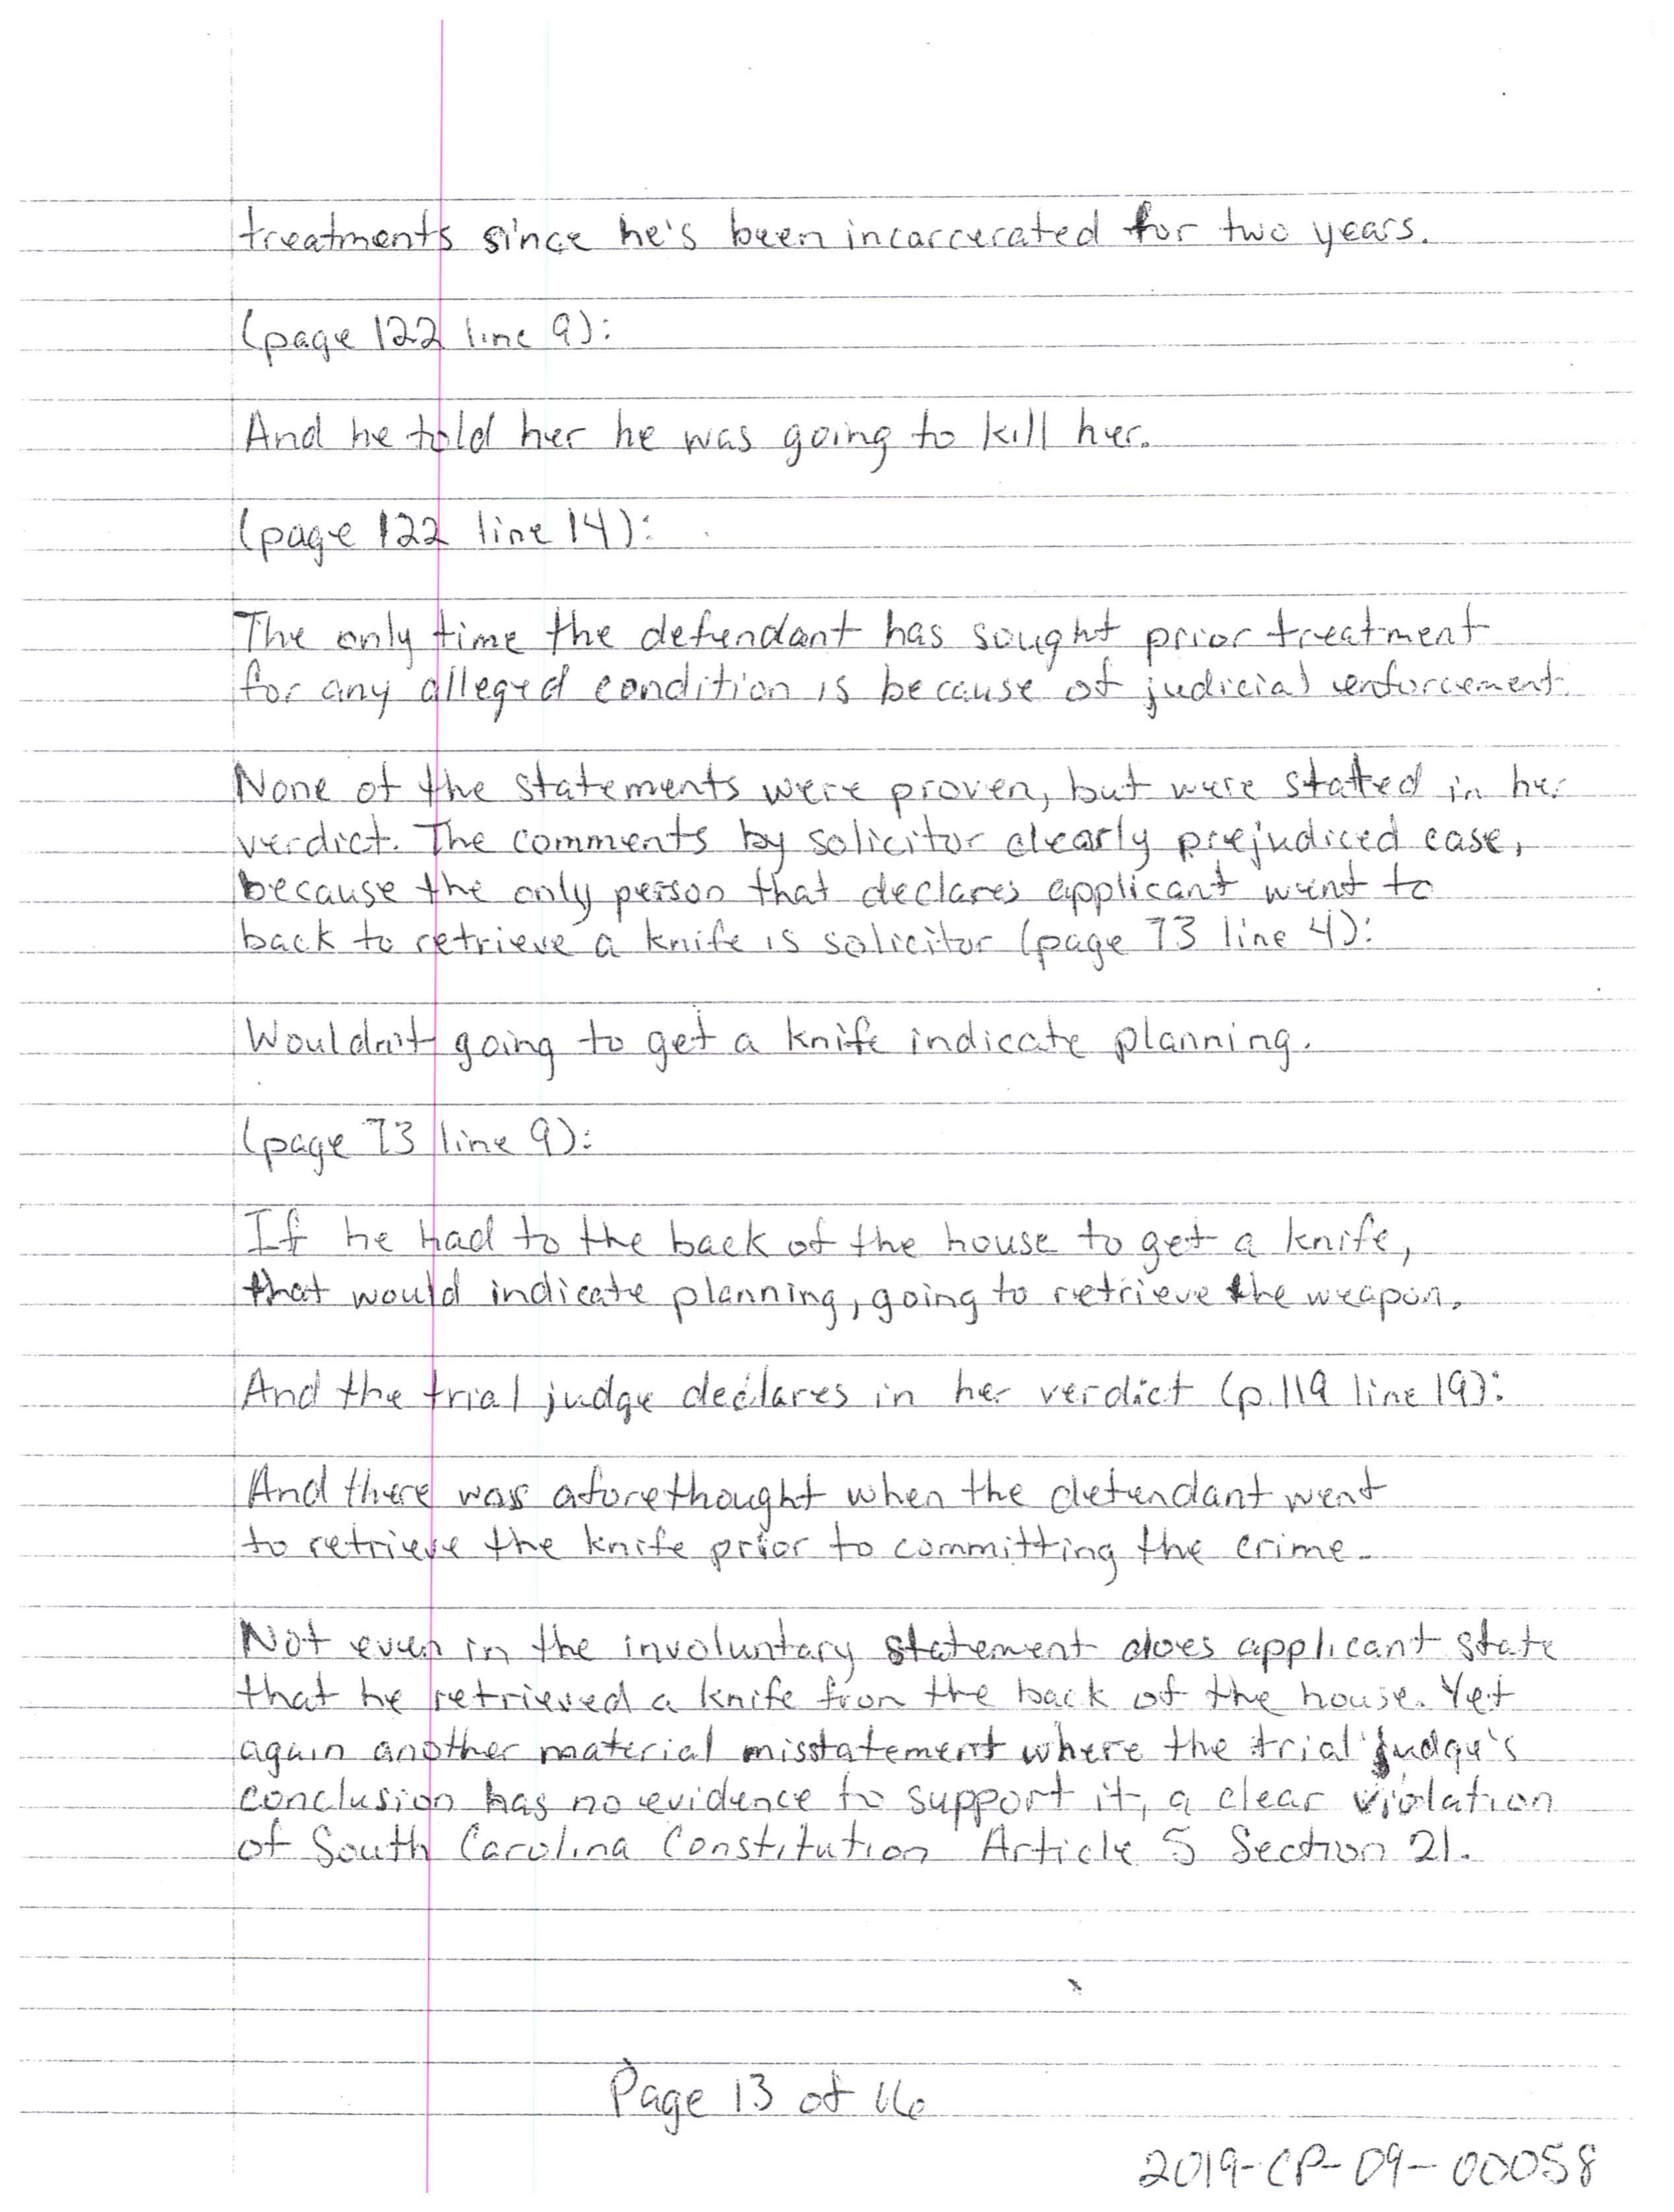 treatments since he's been incarcerated for two years.
(page 122 line 9):
And he told her he was going to kill her.
(page 122 line 14):
The only time the defendant has sought prior treatment
for any alleged condition is because of judicial enforcement.
None of the statements were proven, but were stated in her
verdict. The comments by solicitor clearly prejudiced case,
because the only person that declares applicant went to
back to retrieve a knife is solicitor (page 73 line 4):
Wouldn't going to get a knife indicate planning.
(page 73 line 9):
If he had to the back of the house to get a knife,
that would indicate planning, going to retrieve the weapon.
And the trial judge declares in her verdict (p.119 line 19):
And there was aforethought when the defendant went
to retrieve the knife prior to committing the crime.
Not even in the involuntary statement does applicant state
that he retrieved a knife from the back of the house. Yet
again another material misstatement where the trial judge's
conclusion has no evidence to support it, a clear violation
of South Carolina Constitution Article 5 Section 21.
Page 13 of 16
2019-CP-09-00058